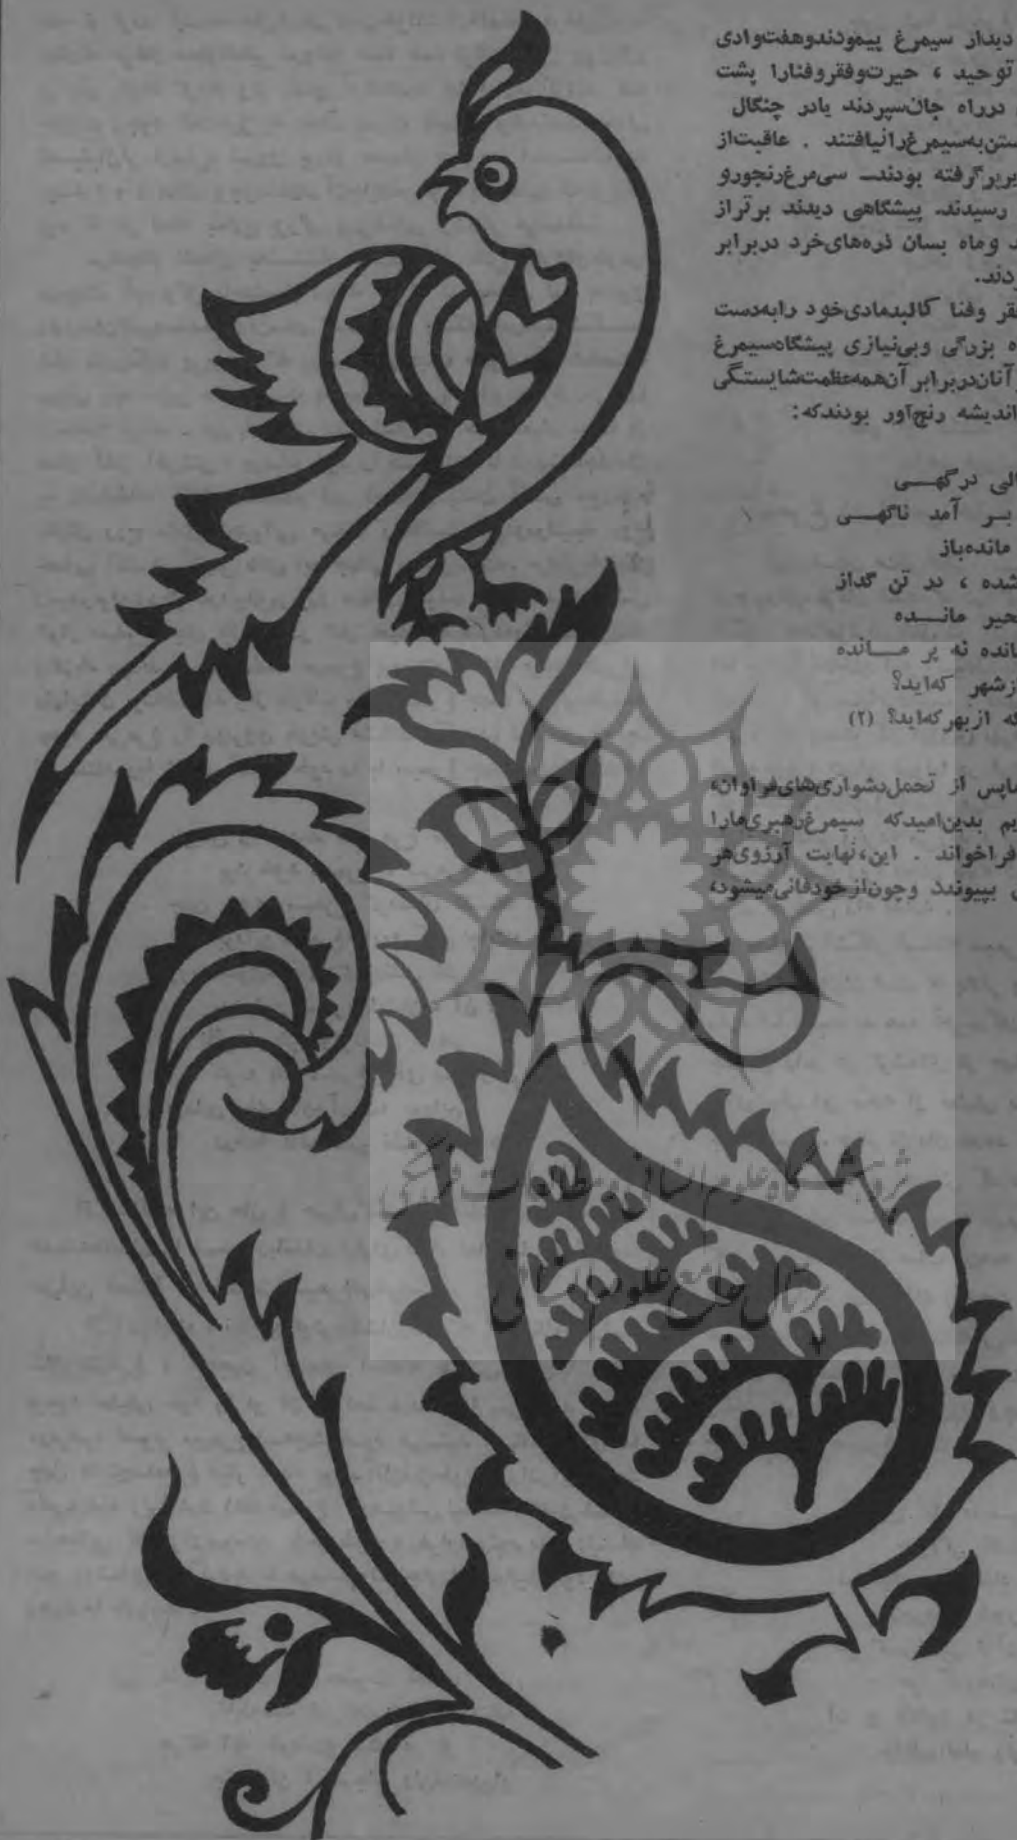 دیدار سیمرغ پیمودندوهفت‌وادی
توحید ، حیرت‌وفقروفنارا پشت
درراه جان‌سپردند یادر چنگال
ستن‌به‌سیمرغ‌رانیافتند . عاقبت‌از
بربرگرفته بودند_ سی‌مرغ‌رنجورو
رسیدند. پیشگاهی دیدند برتراز
د وماه بسان ذره‌های‌خرد دربرابر
ودند.
قر وفنا کالبدمادی‌خود رابه‌دست
ه بزرگی وبی‌نیازی پیشگاه‌سیمرغ
آنان‌دربرابر آن‌همه‌عظمت‌شایستگی
اندیشه رنج‌آور بودندکه:
الی درگهـــی
بــر آمد ناگهـــی
مانده‌باز
شده ، در تن گداز
حیر مانـــده
مانده نه پر مـــانده
ازشهر که‌اید؟
که ازبهر که‌اید؟ (۲)
ماپس از تحمل‌دشواری‌های‌فراوان،
یم بدین‌امیدکه سیمرغ‌رهبری‌مارا
فراخواند . این،نهایت آرزوی‌هر
بپیوندد وچون‌ازخودفانی‌میشود،
پژوهشگاه علوم انسانی و مطالعات فرهنگی
پرتال جامع علوم انسانی